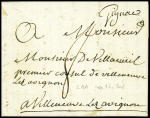 Pignan
A Monsieur
Monsieur De Villeneuve
premier consul de villeneuve
les avignon
a villeneuve les avignon